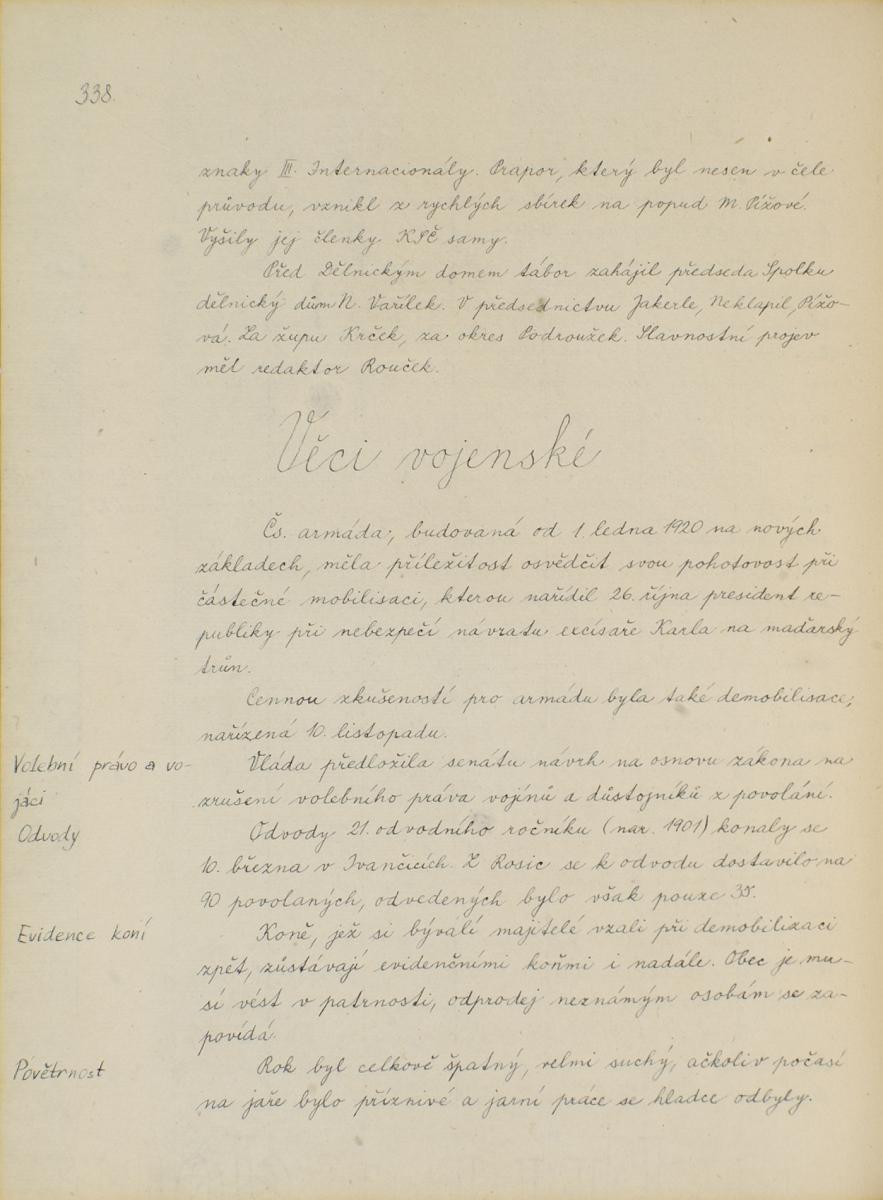 338.
znaky III. Internacionály. Prapor, který byl nesen v čele
průvodu, vznikl z rychlých sbírek na popud M. Pížové.
Vyšily jej členky KSČ samy.
Před Dělnickým domem tábor zahájil předseda Spolku
dělnický dům N. Vařílek. V předsednictvu Jakerle, Neklapil, Pížo-
vá. Za župu Krček, za okres Podroužek. Slavnostní projev
měl redaktor Rouček.
Věci vojenské
Čs. armáda, budovaná od 1. ledna 1920 na nových
základech, měla příležitost osvědčit svou pohotovost při
částečné mobilisaci, kterou nařídil 26. října president re-
publiky při nebezpečí návratu excísaře Karla na maďarský
trůn.
Cennou zkušeností pro armádu byla také demobilisace,
nařízená 10. listopadu.
Volební právo a vo-
jáci
Vláda předložila senátu návrh na osnovu zákona na
zrušení volebního práva vojínů a důstojníků z povolání.
Odvody
Odvody 21. odvodního ročníku (nar. 1901) konaly se
10. března v Ivančicích. Z Rosic se k odvodu dostavilo na
90 povolaných, odvedených bylo však pouze 35.
Evidence koní
Koně, jež si bývalí majitelé vzali při demobilizaci
zpět, zůstávají evidenčními koňmi i nadále. Obec je mu-
sí vést v patrnosti, odprodej neznámým osobám se za-
povídá.
Povětrnost
Rok byl celkově špatný, velmi suchý, ačkoliv počasí
na jaře bylo příznivé a jarní práce se hladce odbyly.